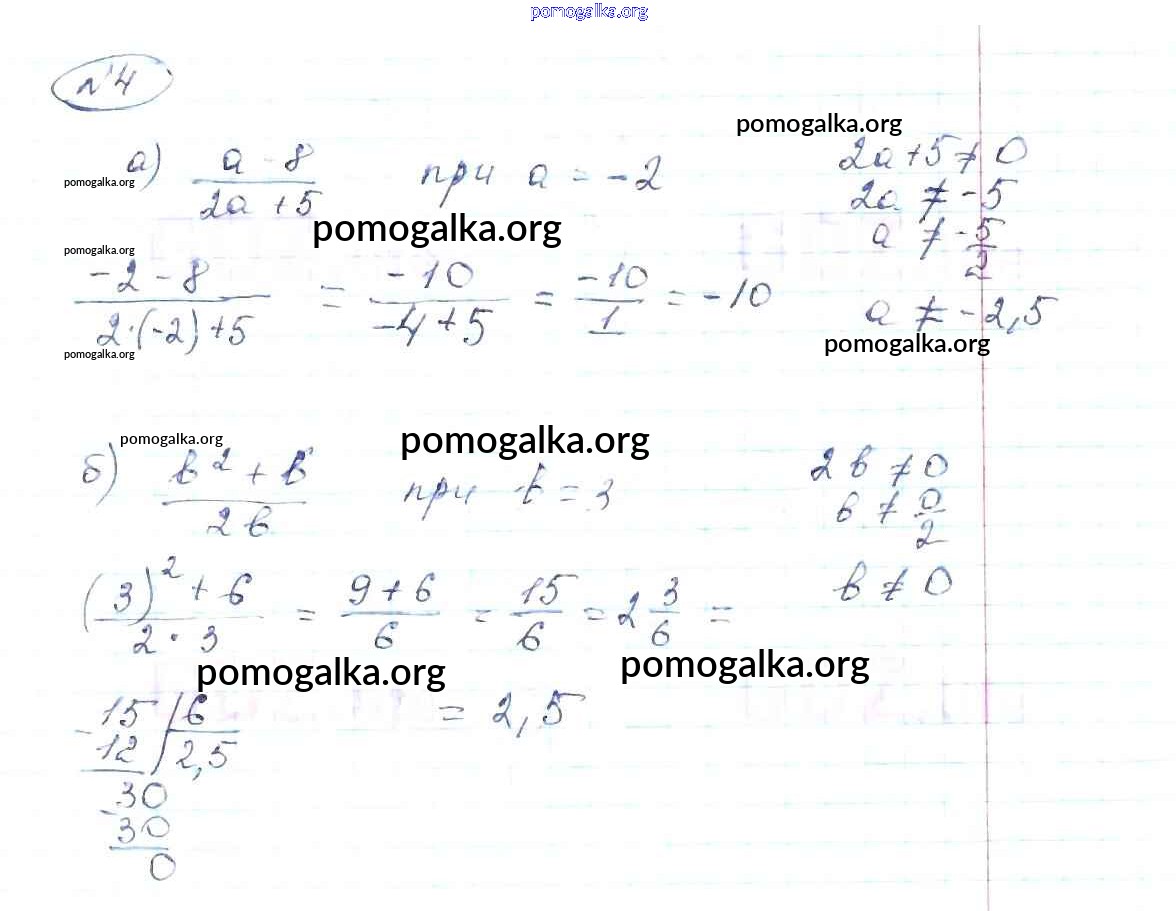 pomogalka.org
№4
pomogalka.org
а) (a - 8)/(2a + 5) при a = -2
2a + 5 ≠ 0
pomogalka.org
2a ≠ -5
pomogalka.org
a ≠ -5/2
pomogalka.org
(-2 - 8)/(2·(-2) + 5) = -10/(-4 + 5) = -10/1 = -10
a ≠ -2,5
pomogalka.org
pomogalka.org
pomogalka.org
pomogalka.org
б) (b² + b)/(2b) при b = 3
2b ≠ 0
b ≠ 0/2
b ≠ 0
((3)² + 6)/(2·3) = (9 + 6)/6 = 15/6 = 2 3/6 =
pomogalka.org
pomogalka.org
= 2,5
15 | 6
- 12 | 2,5
- 30
30
0